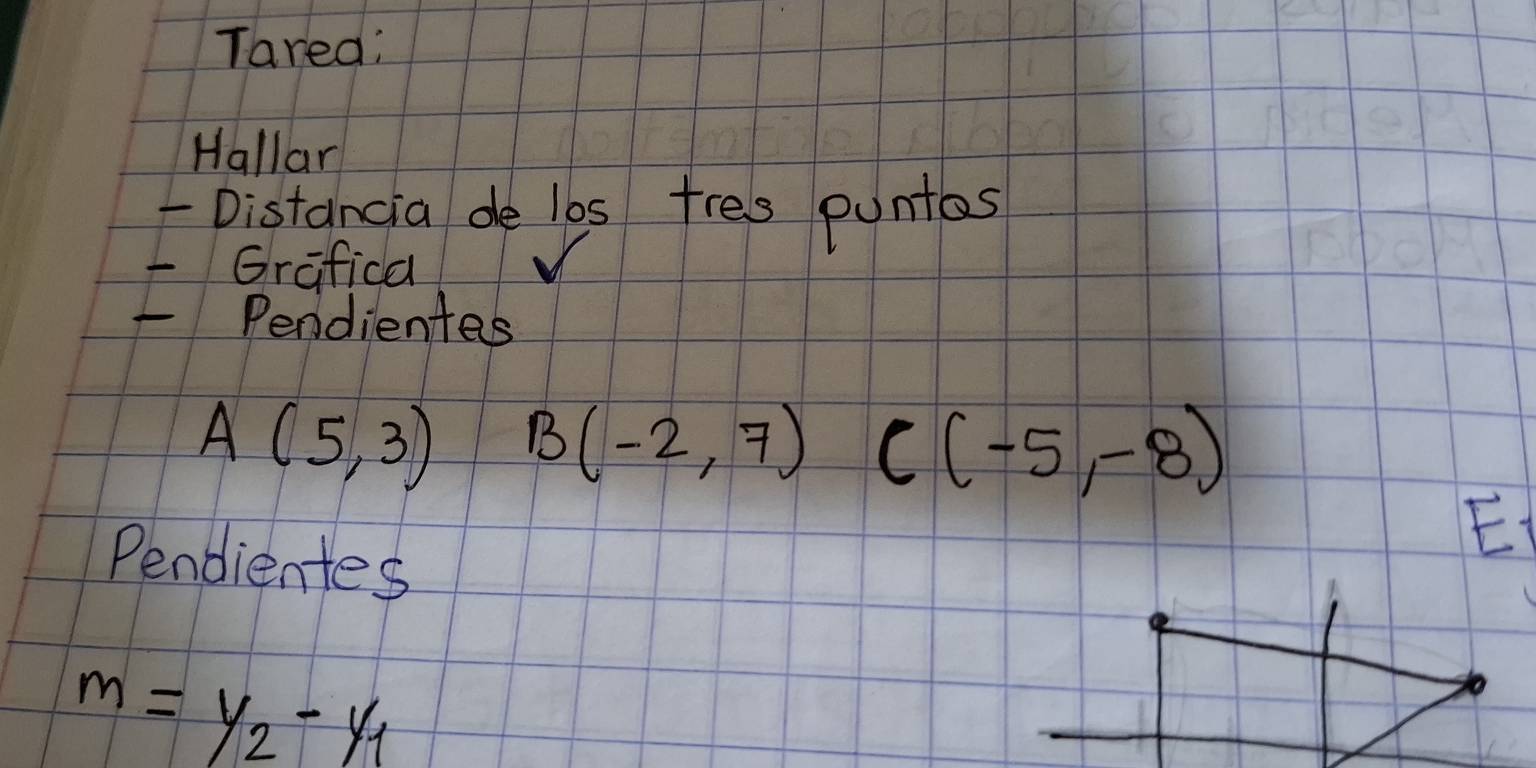 Tarea:
Hallar
- Distancia de los tres puntos
- Gráfica ✓
- Pendientes
A (5,3) B(-2,7) C(-5,-8)
Pendientes
m = y₂ - y₁